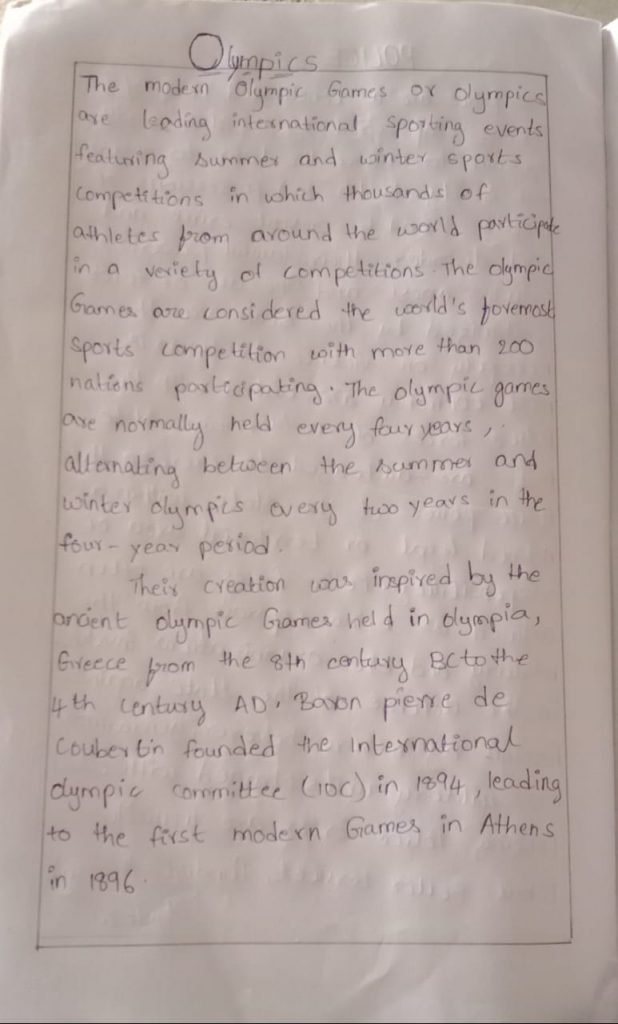 Olympics
The modern Olympic Games or olympics
are leading international sporting events
featuring summer and winter sports
competitions in which thousands of
athletes from around the world participate
in a veriety of competitions. The olympic
Games are considered the world's foremost
sports competition with more than 200
nations participating. The olympic games
are normally held every four years,
alternating between the summer and
winter olympics every two years in the
four-year period.
Their creation was inspired by the
ancient olympic Games held in olympia,
Greece from the 8th century BC to the
4th century AD. Baron pierre de
Coubertin founded the International
olympic committee (IOC) in 1894, leading
to the first modern Games in Athens
in 1896.